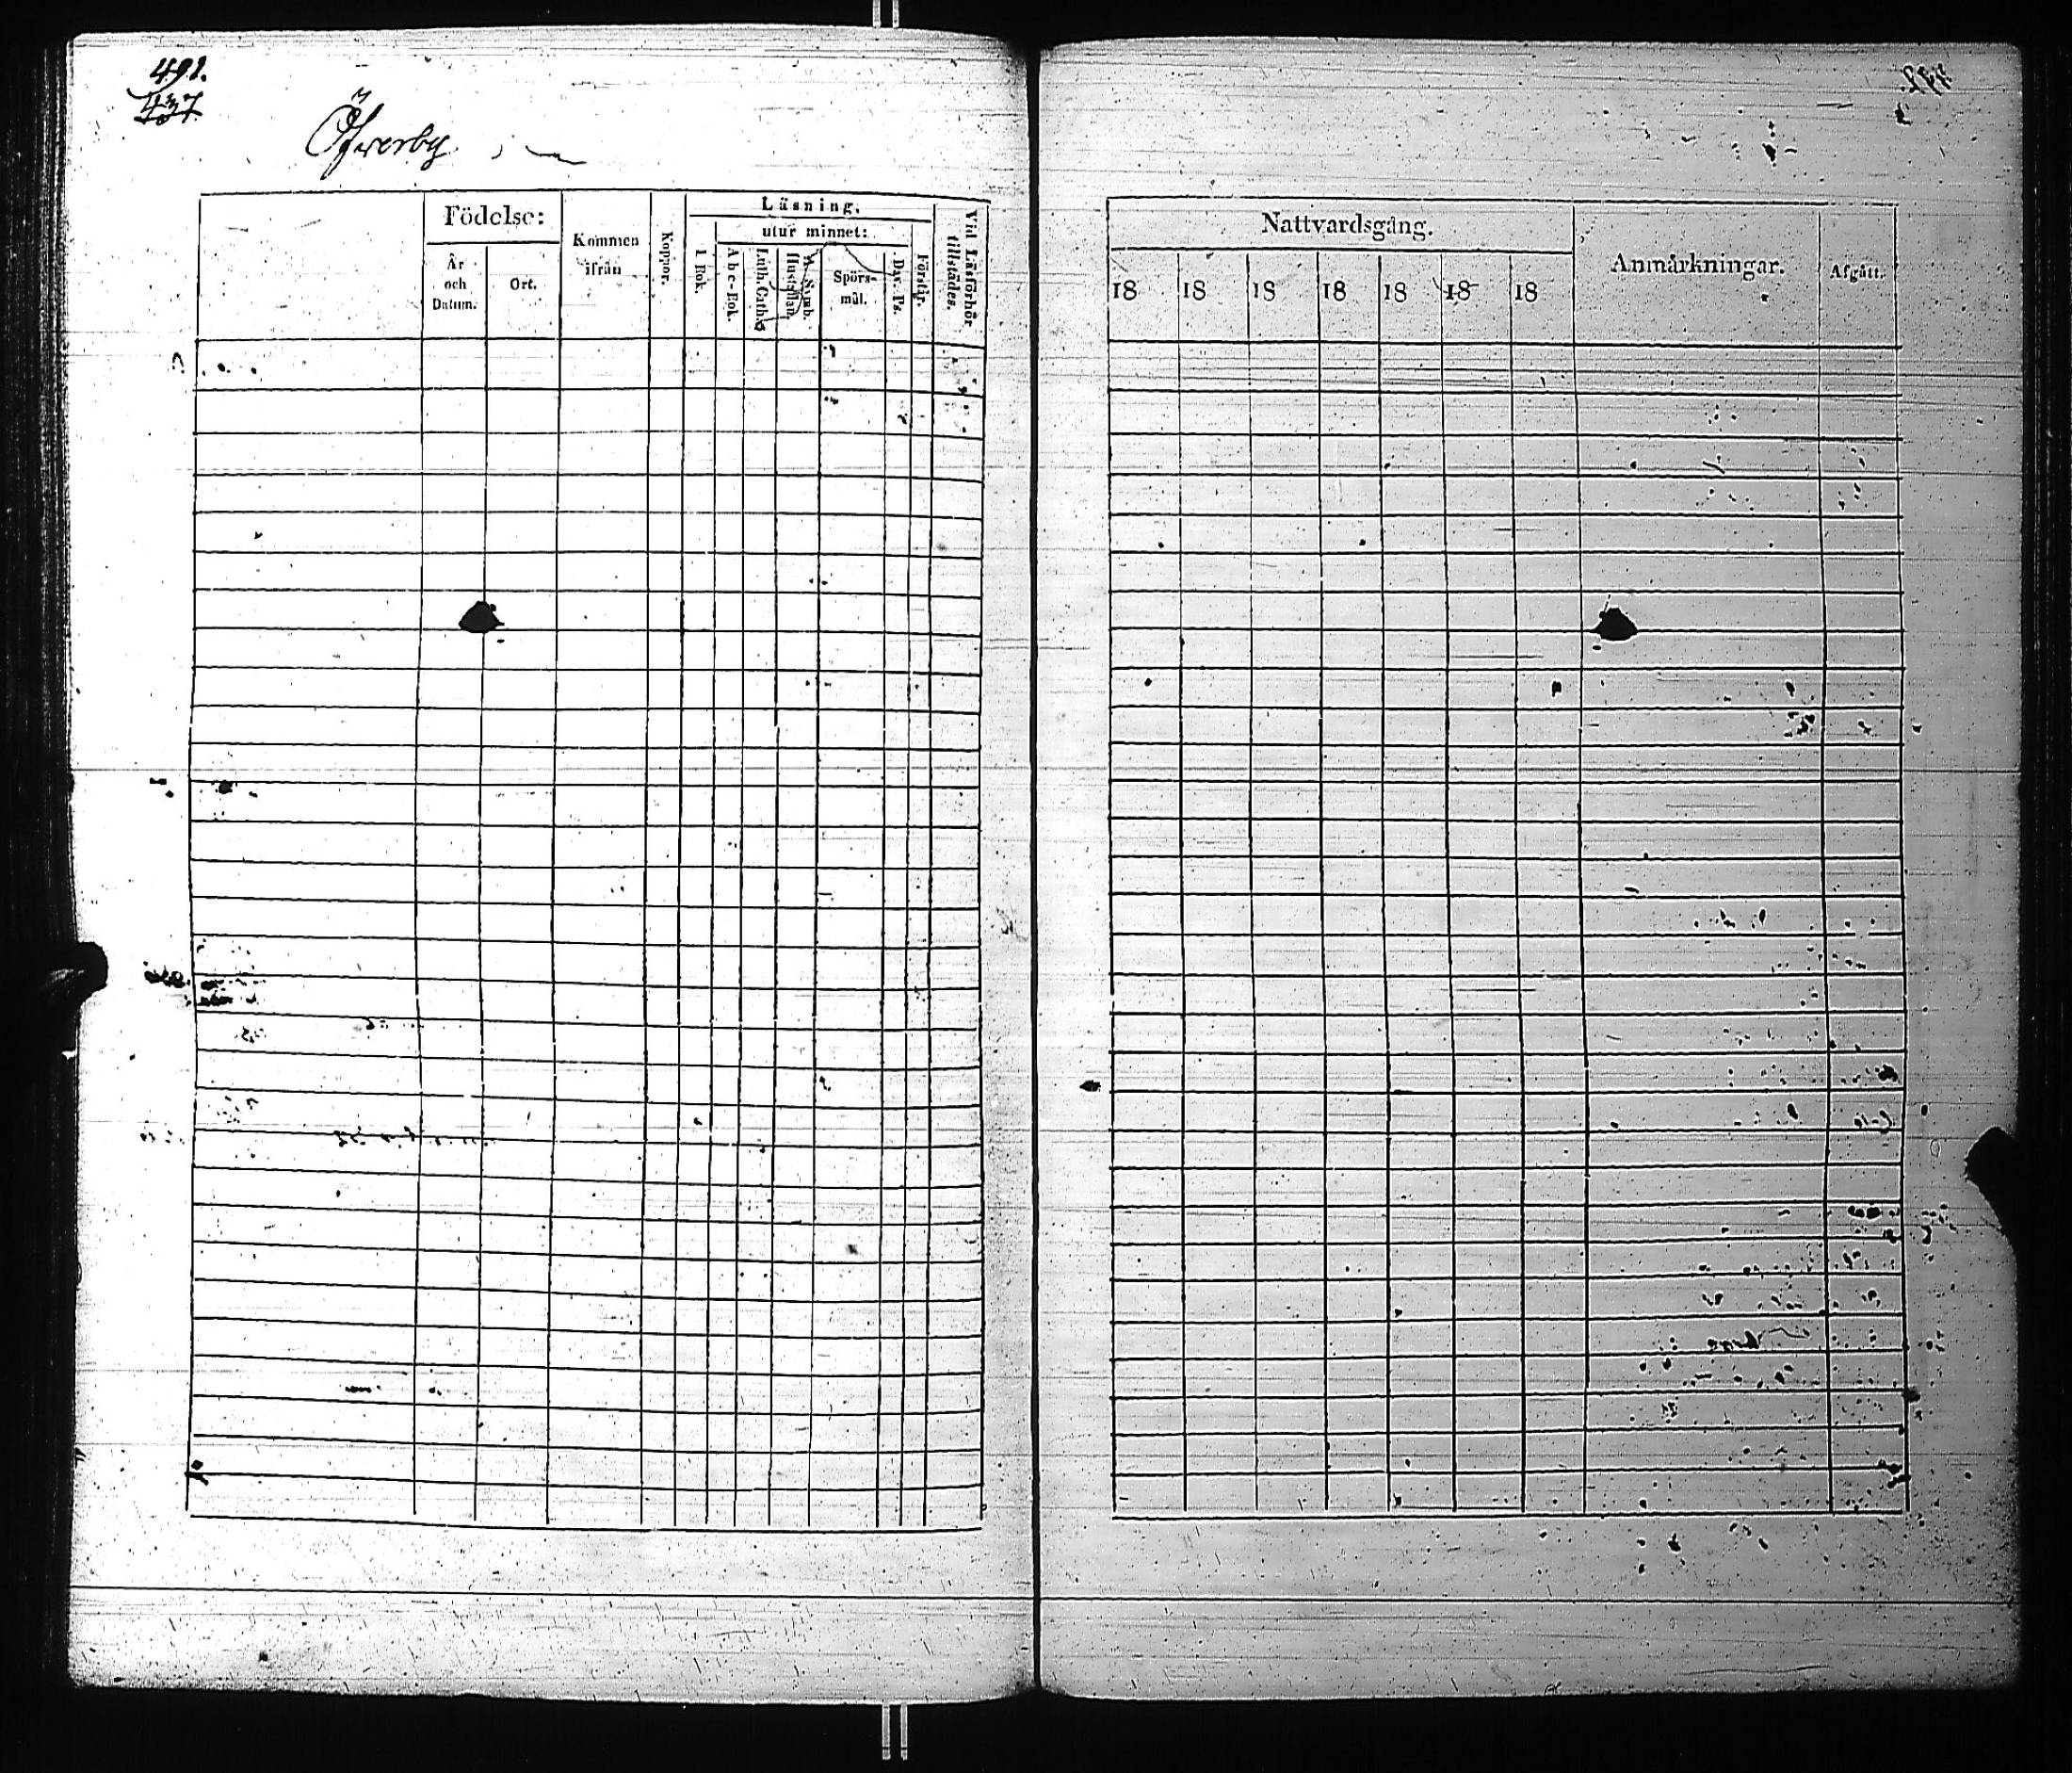 491.
437.
Öfverby.
Födelse:
År
och
Datum.
Ort.
Kommen
ifrån
Koppor.
Läsning.
utur minnet:
I Bok.
Abc-Bok.
Luth. Cath.
Hustaflan
A. Symb.
Spörs-
mål.
Dav. Ps.
Förstår.
Vid Läsförhör
tillstädes.
Nattvardsgång.
18 18 18 18 18 18 18
Anmärkningar.
Afgått.